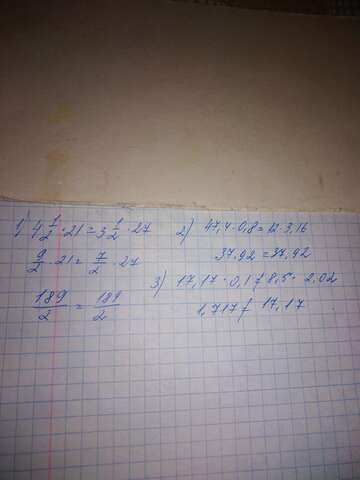 1) 4 1/2 · 21 = 3 1/2 · 27
9/2 · 21 = 7/2 · 27
189/2 = 189/2
2) 47,4 · 0,8 = 12 · 3,16
37,92 = 37,92
3) 17,17 · 0,1 ≠ 8,5 · 2,02
1,717 ≠ 17,17